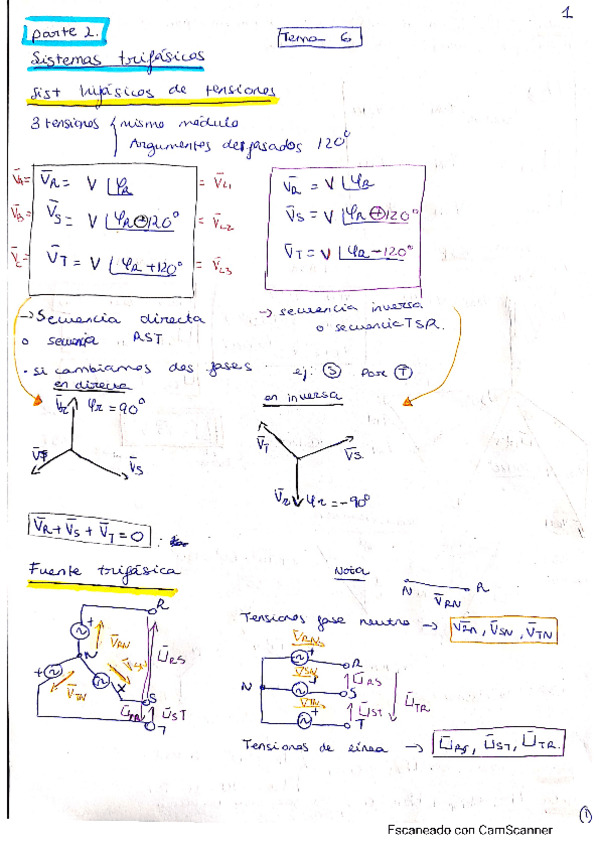 1
parte 2.
Tema 6
Sistemas trifásicos
Sist trifásicos de tensiones
3 tensiones { mismo módulo
Argumentos desfasados 120°
V̄_R = V ∠φ_R = V̄_L1
V̄_B = V̄_S = V ∠φ_R ⊖ 120° = V̄_L2
V̄_C = V̄_T = V ∠φ_R + 120° = V̄_L3
V̄_R = V ∠φ_R
V̄_S = V ∠φ_R ⊕ 120°
V̄_T = V ∠φ_R - 120°
→ Secuencia directa
o secuencia RST
→ secuencia inversa
o secuencia TSR.
· si cambiamos dos fases ej: Ⓢ por Ⓣ
en directa
V̄_R φ_R = 90°
V̄_T
V̄_S
en inversa
V̄_T
V̄_S
V̄_R φ_R = -90°
V̄_R + V̄_S + V̄_T = 0
Fuente trifásica
R
+
V̄_RN
Ū_RS
N
+
V̄_TN
S
Ū_ST
T
Nota
N R
V̄_RN
Tensiones fase neutro → V̄_RN, V̄_SN, V̄_TN
V̄_RN
+
R
Ū_RS
V̄_SN
N
S
Ū_TR
V̄_TN
+
Ū_ST
T
Tensiones de línea → Ū_RS, Ū_ST, Ū_TR.
①
Escaneado con CamScanner